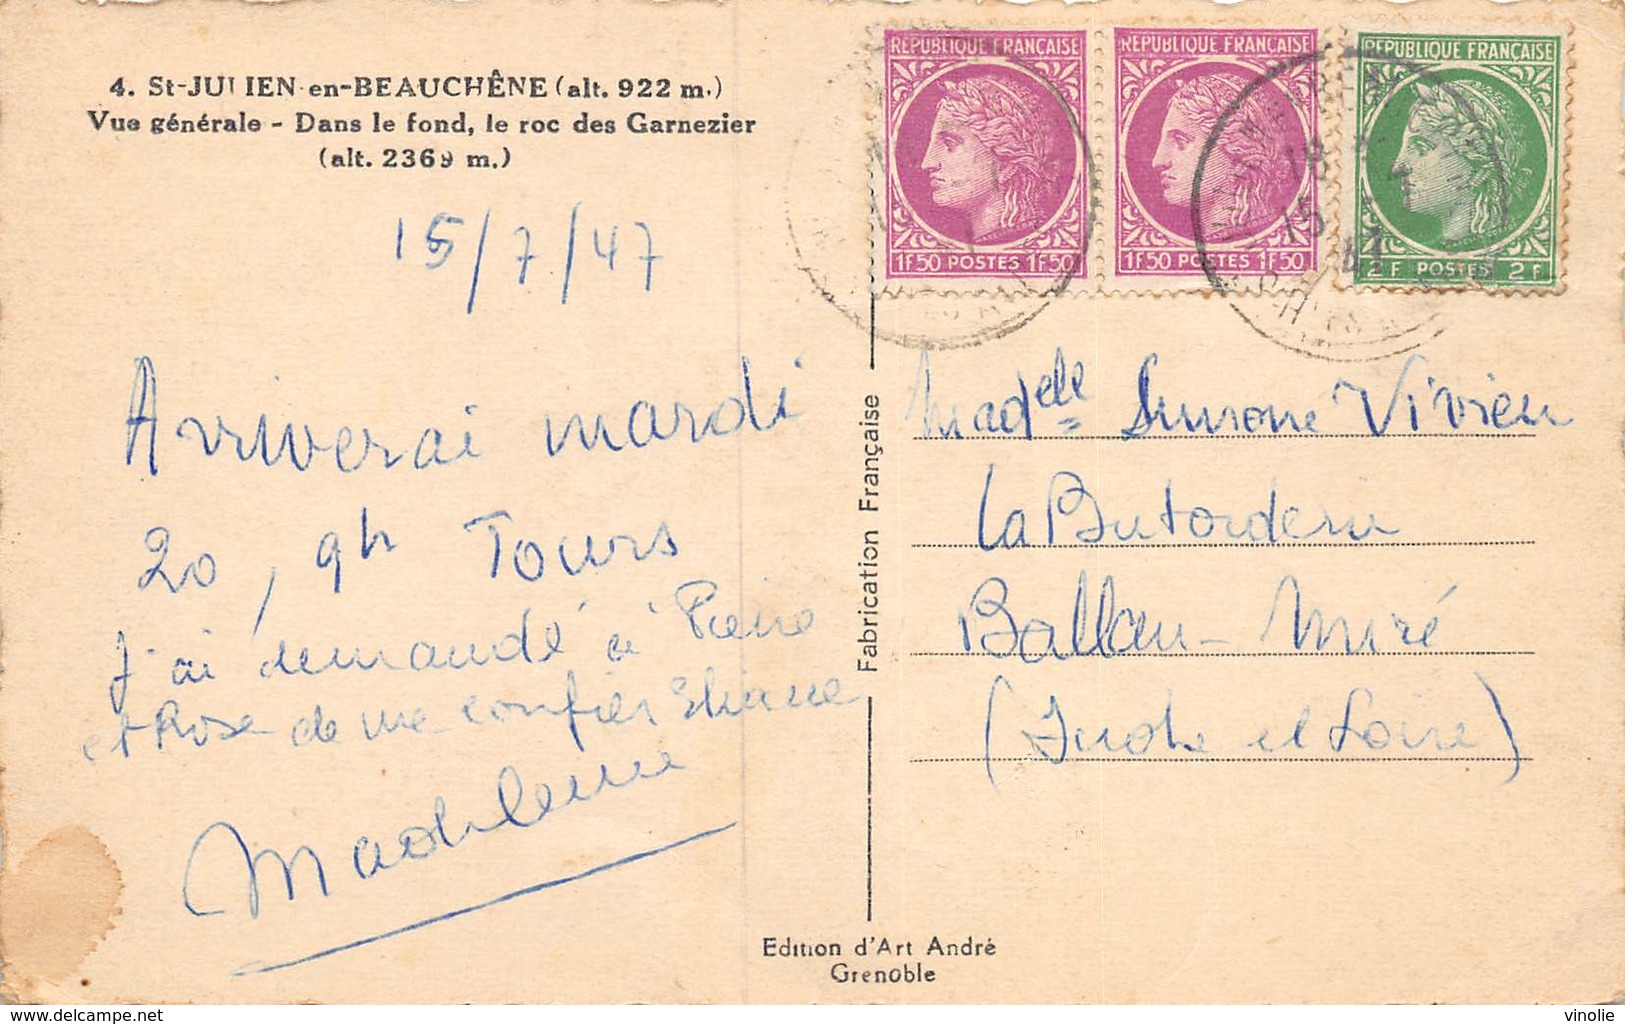 4. St-JULIEN-en-BEAUCHÊNE (alt. 922 m.)
Vue générale - Dans le fond, le roc des Garnezier
(alt. 2369 m.)
15/7/47
Arriverai mardi
20, 9h Tours
J'ai demandé à Pierre
et Rose de me confier Eliane
Madeleine
RÉPUBLIQUE FRANÇAISE
1F50 POSTES 1F50
RÉPUBLIQUE FRANÇAISE
1F50 POSTES 1F50
RÉPUBLIQUE FRANÇAISE
2F POSTES 2F
18
15
Fabrication Française
Madelle Simone Vivien
La Butorderie
Ballan-Miré
(Indre et Loire)
Edition d'Art André
Grenoble
www.delcampe.net
vinolie